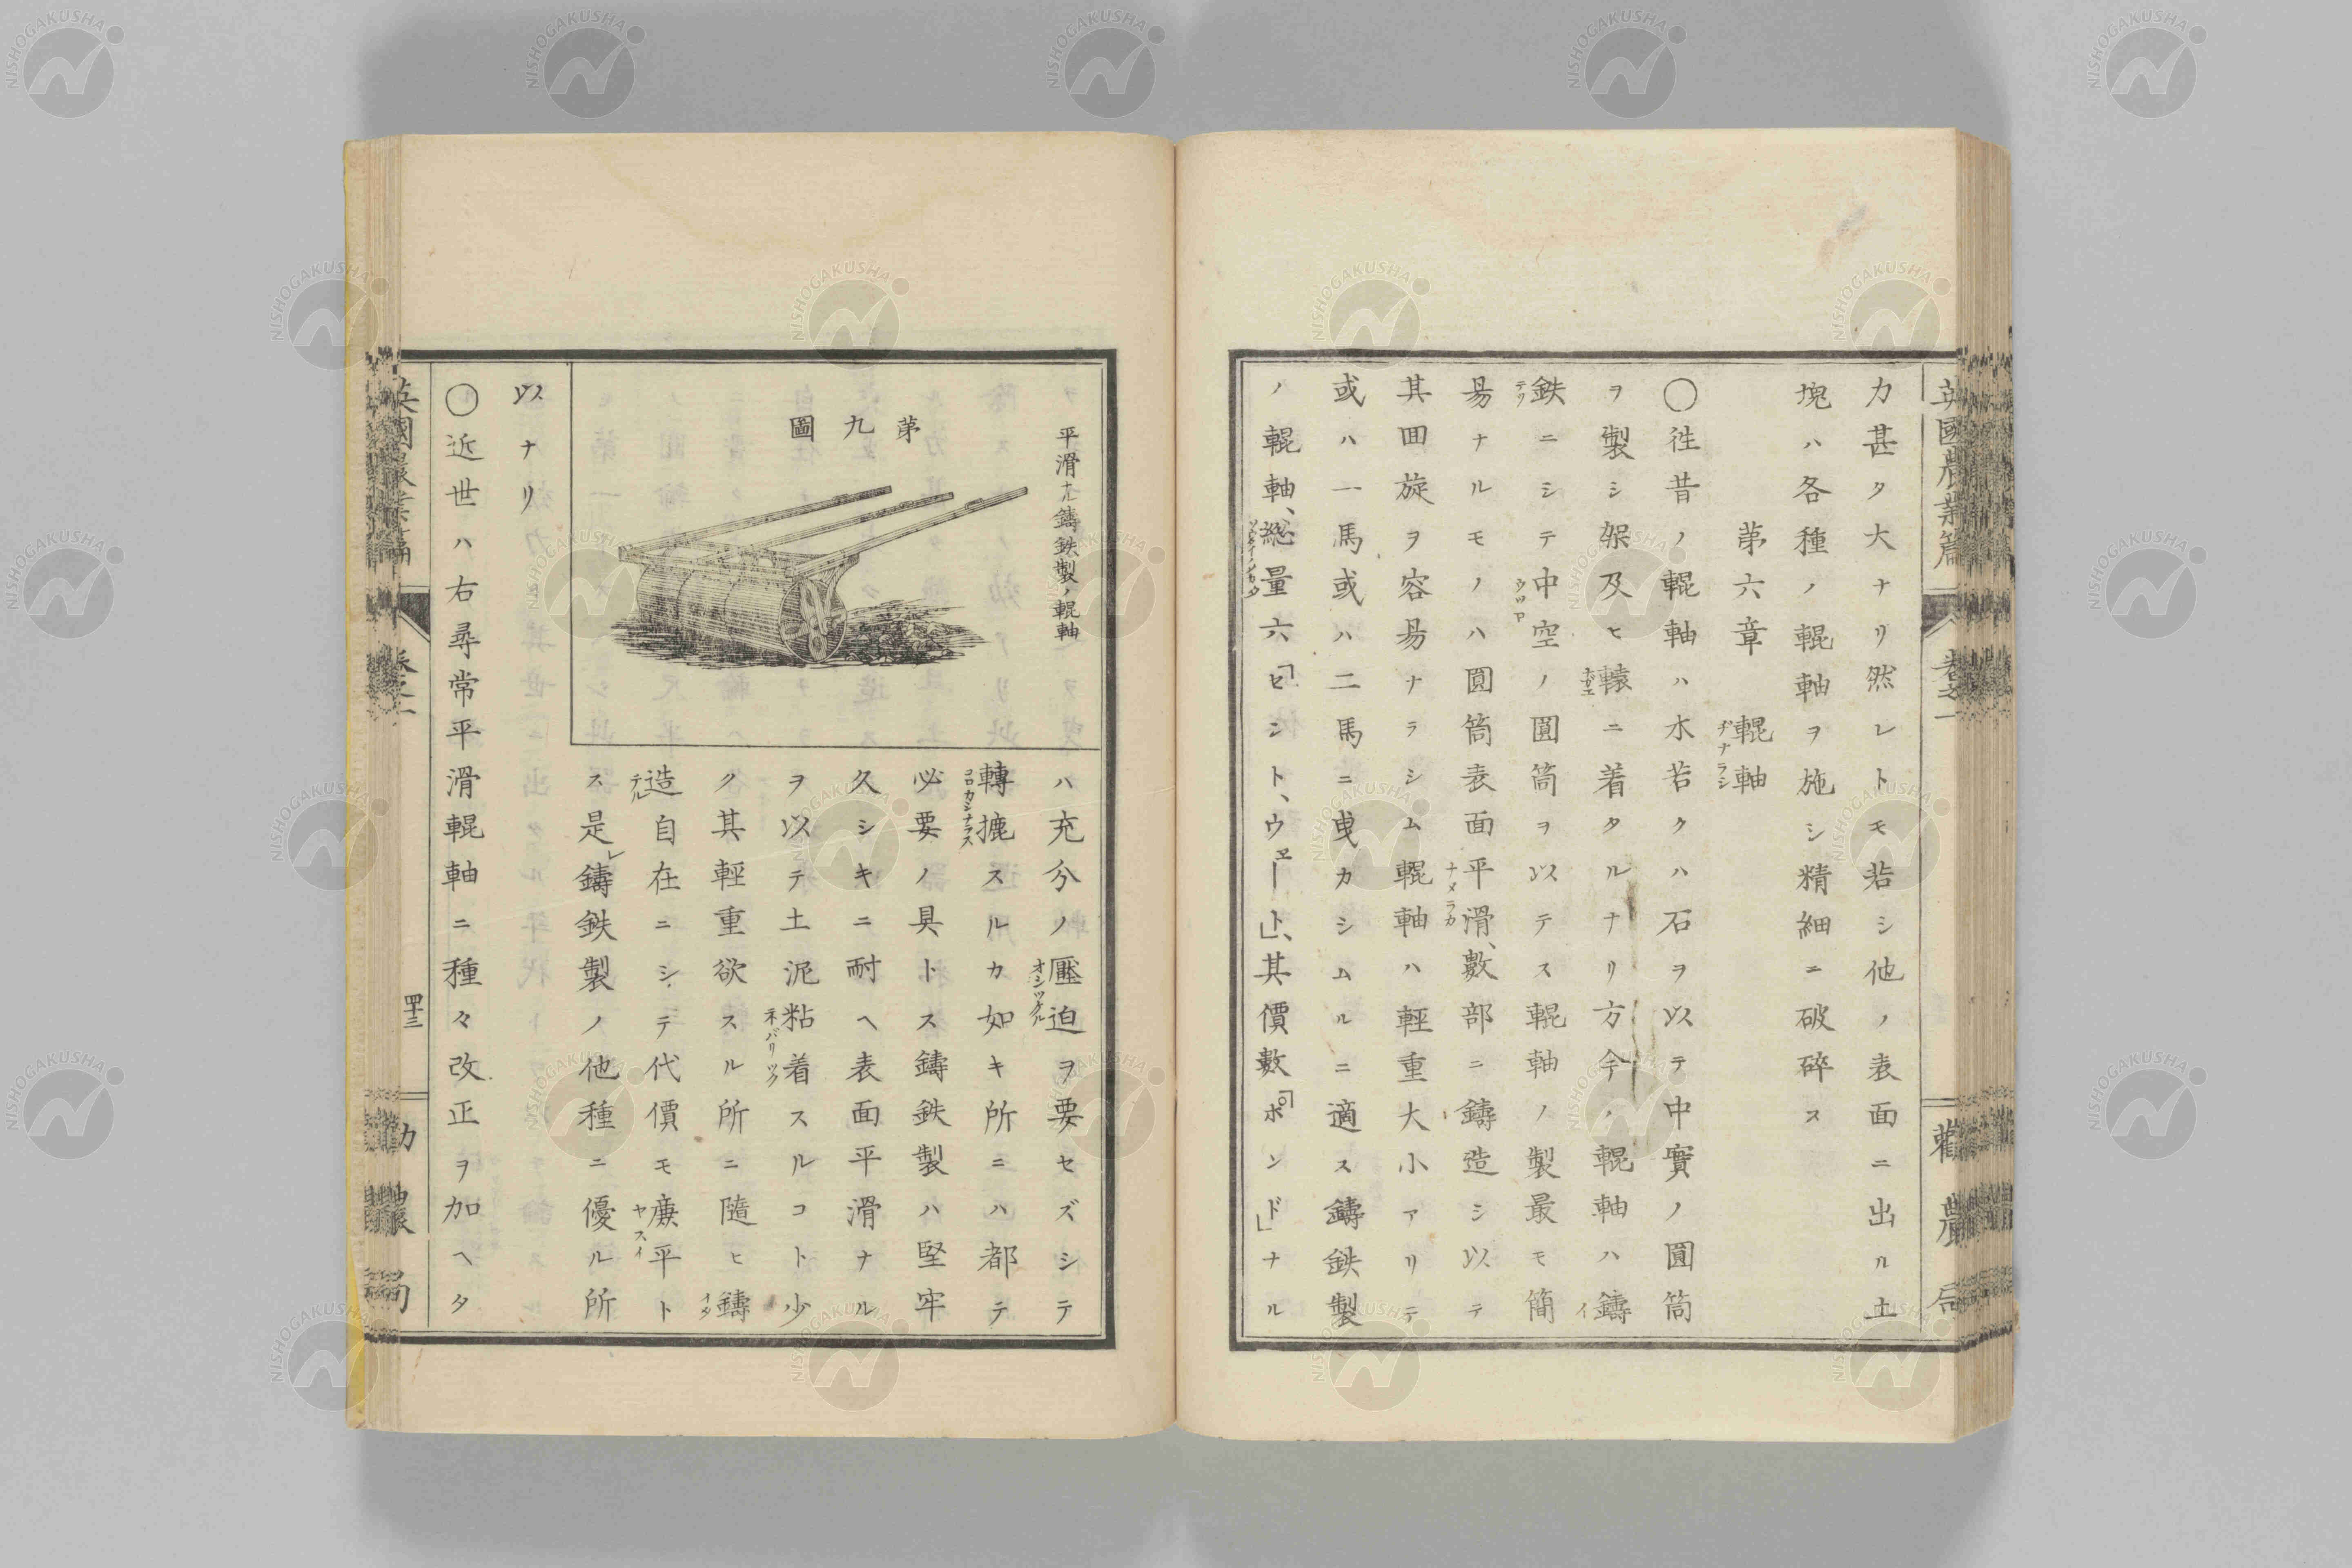 英國農業篇 卷之一 勸農局
力甚タ大ナリ然レトモ若シ他ノ表面ニ出ル土
塊ハ各種ノ輥軸ヲ施シ精細ニ破碎ス
第六章 輥軸
ヂナラシ
〇徃昔ノ輥軸ハ木若クハ石ヲ以テ中實ノ圓筒
ヲ製シ架及ヒ轅ニ着タルナリ方今ノ輥軸ハ鑄
ナガエ
イ
鉄ニシテ中空ノ圓筒ヲ以テス輥軸ノ製最モ簡
テツ
ウツロ
易ナルモノハ圓筒表面平滑、數部ニ鑄造シ以テ
ナメラカ
其囬旋ヲ容易ナラシム輥軸ハ輕重大小アリテ
或ハ一馬或ハ二馬ニ曳カシムルニ適ス鑄鉄製
ノ輥軸、總量六「ヒンドト、ウヱート」、其價數「ポンド」ナル
平滑ナル鑄鉄製ノ輥軸
第九圖
ハ充分ノ壓迫ヲ要セズシテ
オシツケル
轉摝スルカ如キ所ニハ都テ
コロカシナラス
必要ノ具トス鑄鉄製ハ堅牢
久シキニ耐ヘ表面平滑ナル
ヲ以テ土泥粘着スルコト少
ネバリツク
ク其輕重欲スル所ニ隨ヒ鑄
イタ
造自在ニシテ代價モ廉平ト
テル
ヤスイ
ス是レ鑄鉄製ノ他種ニ優ル所
以ナリ
〇近世ハ右尋常平滑輥軸ニ種々改正ヲ加ヘタ
英國農業篇 卷之一 四十三 勸農局
NISHOGAKUSHA